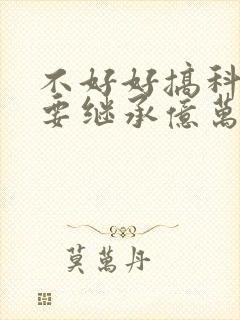 不好好搞科
要继承億萬
莫萬丹